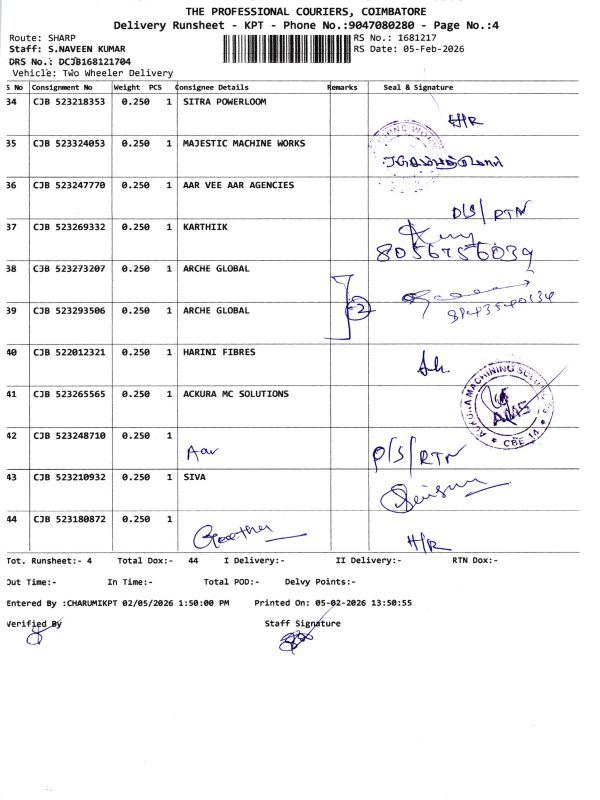 THE PROFESSIONAL COURIERS, COIMBATORE
Delivery Runsheet - KPT - Phone No.:9047080280 - Page No.:4
Route: SHARP
RS No.: 1681217
Staff: S.NAVEEN KUMAR
RS Date: 05-Feb-2026
DRS No.: DCJB168121704
Vehicle: Two Wheeler Delivery
S No Consignment No Weight PCS Consignee Details Remarks Seal & Signature
34 CJB 523218353 0.250 1 SITRA POWERLOOM
H/R
35 CJB 523324053 0.250 1 MAJESTIC MACHINE WORKS
36 CJB 523247770 0.250 1 AAR VEE AAR AGENCIES
D/S/RTN
37 CJB 523269332 0.250 1 KARTHIIK
8056756039
38 CJB 523273207 0.250 1 ARCHE GLOBAL
39 CJB 523293506 0.250 1 ARCHE GLOBAL
2
40 CJB 522012321 0.250 1 HARINI FIBRES
41 CJB 523265565 0.250 1 ACKURA MC SOLUTIONS
ACKURA MACHINING SOLU
AMS
CBE 14
42 CJB 523248710 0.250 1
D/S/RTN
43 CJB 523210932 0.250 1 SIVA
44 CJB 523180872 0.250 1
H/R
Tot. Runsheet:- 4 Total Dox:- 44 I Delivery:- II Delivery:- RTN Dox:-
Out Time:- In Time:- Total POD:- Delvy Points:-
Entered By :CHARUMIKPT 02/05/2026 1:50:00 PM Printed On: 05-02-2026 13:50:55
Verified By Staff Signature